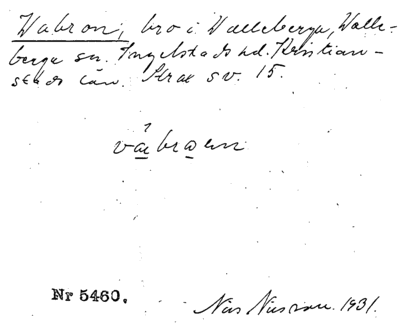 Wabron, bro i Walleberga, Walle-
berga sn. Ingelstads hd. Kristian-
stads län. Skae sv. 15.
vabroen
Nr 5460.
Nils Nilsson. 1931.